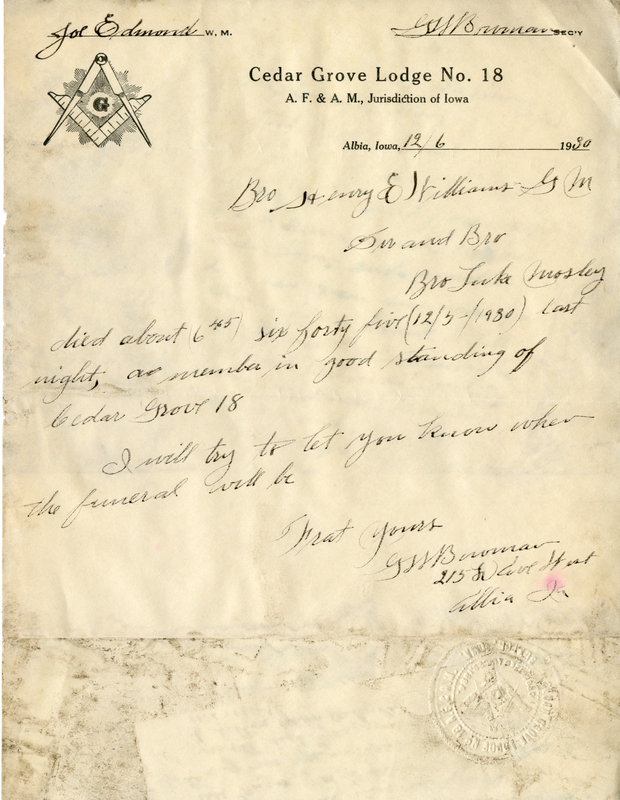 Joe Edmond W. M.
GW Bowman SEC'Y
G
Cedar Grove Lodge No. 18
A. F. & A. M., Jurisdiction of Iowa
Albia, Iowa, 12/6 1930
Bro Henry E Williams G M
Sir and Bro
Bro Luke Mosley
died about (6 45) six forty five (12/5-/1930) last
night, a member in good standing of
Cedar Grove 18
I will try to let you know when
the funeral will be
Frat Yours
GW Bowman
215 Ave West
Albia Ia
GROVE LODGE NO. 18 A. F. & A. M.